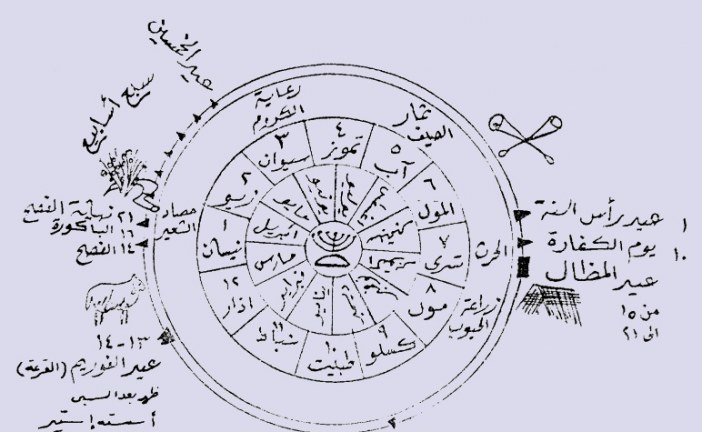 عيد الخمسين
سبع أسابيع
رعاية
الكروم
ثمار
الصيف
حصاد
الشعير
٢١ نهاية الفصح
١٦ الباكورة
١٤ الفصح
١٣-١٤
عيد الفوريم (القرعة)
ظهر بعد السبى
أسسته إستير
١ عيد رأس السنة
١٠ يوم الكفارة
عيد المظال
من ١٥
الى ٢١
الحرث
زراعة
الحبوب
١ نيسان
٢ زيو
٣ سيوان
٤ تموز
٥ آب
٦ المول
٧ تسرى
٨ مول
٩ كسلو
١٠ طبنيت
١١ شباط
١٢ اذار
مارس
ابريل
مايو